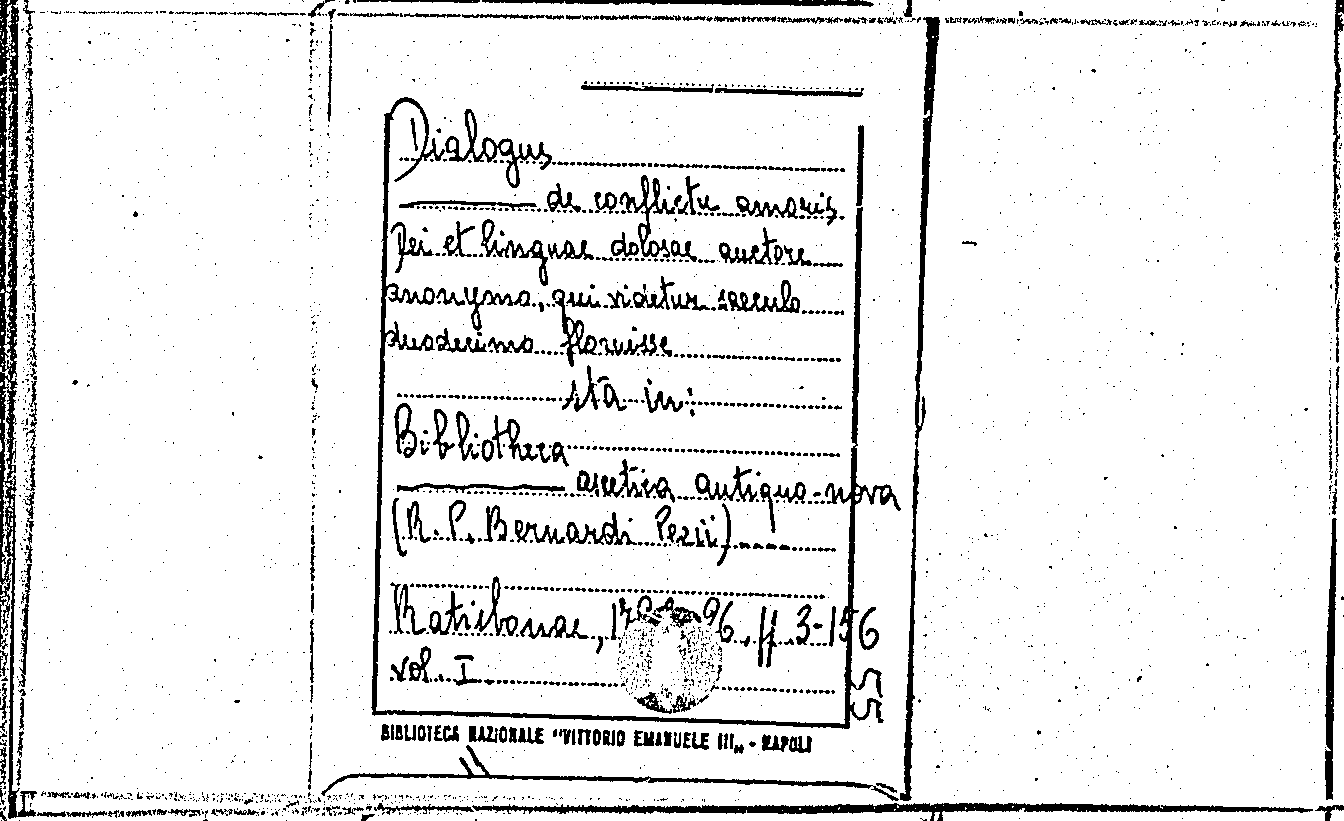 Dialogus
de conflictu amoris
Dei et linguae dolosae auctore
anonymo, qui videtur saeculo
duodecimo floruisse
sta in:
Bibliotheca
ascetica antiquo-nova
(R. P. Bernardi Pezii)
Ratisbonae, ff. 3-156
vol. I.
55
BIBLIOTECA NAZIONALE "VITTORIO EMANUELE III„ - NAPOLI